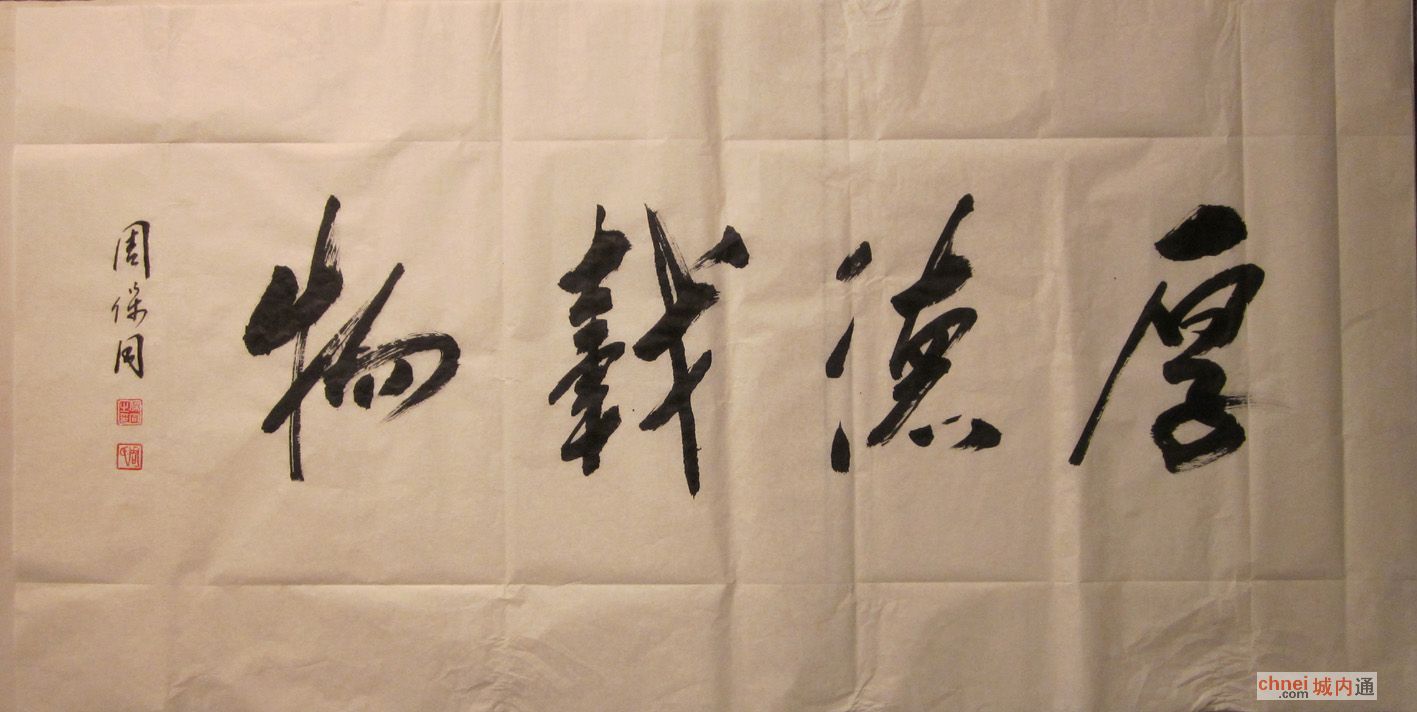 厚德載物
周保同
chnei 城内通
.com